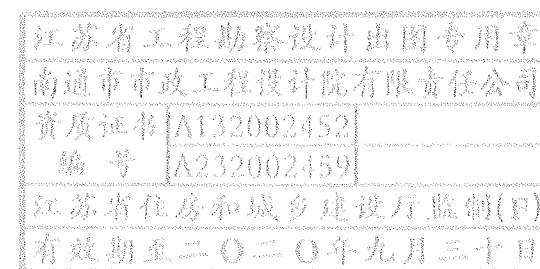 江苏省工程勘察设计出图专用章
南通市市政工程设计院有限责任公司
资质证书
编号
A132002452
A232002459
江苏省住房和城乡建设厅监制(F)
有效期至二〇二〇年九月三十日